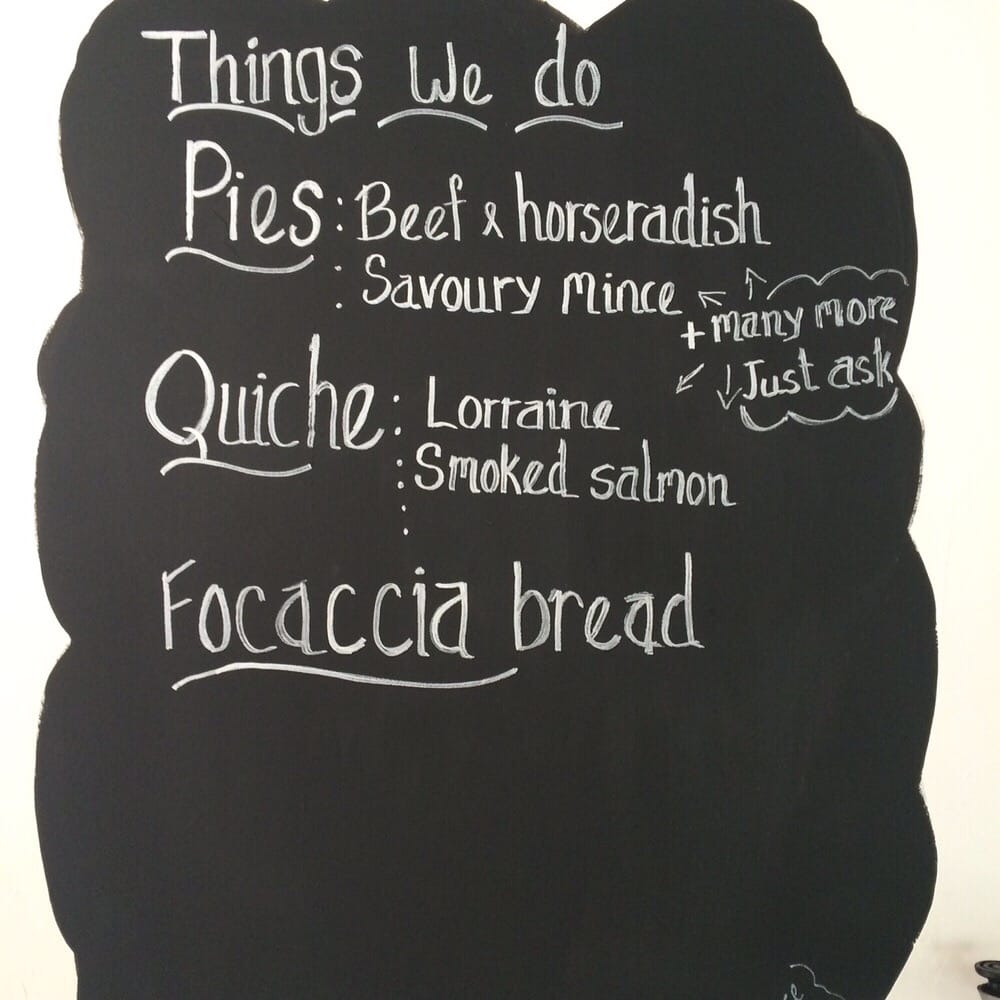 Things We do
Pies: Beef & horseradish
: Savoury Mince
+ many more
Just ask
Quiche: Lorraine
: Smoked salmon
:
Focaccia bread